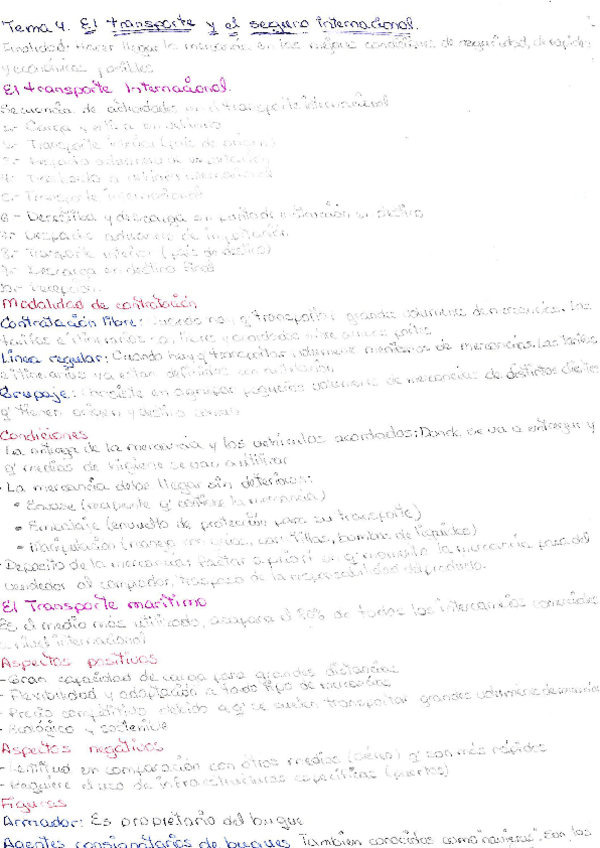 Tema 4. El transporte y el seguro internacional.
Finalidad: Hacer llegar la mercancía en las mejores condiciones de seguridad, de rapidez
y económicas posibles
El transporte Internacional.
Secuencia de actividades en el transporte internacional
Carga y estiba en vehículo
Transporte interior (país de origen)
Despacho aduanero de
4.-
5.- Transporte internacional
6.- Desestiba y descarga en punto de en destino
7.- Despacho aduanero de importación.
8.- Trasporte interior (país de destino)
9.- Descarga en destino final
10.- Recepción.
Modalidad de contratación
Contratación libre: Cuando hay q' transportar grandes volúmenes de mercancías. Las
tarifas e itinerarios son libres y acordados entre ambas partes
Línea regular: Cuando hay q' transportar volúmenes de mercancías. Las tarifas
e itinerarios ya están definidos con antelación.
Grupaje: Consiste en agrupar pequeños volúmenes de mercancías de distintos clientes
q' tienen origen y destino
Condiciones
- La entrega de la mercancía y los vehículos acordados: Donde se va a entregar y
q' medios de higiene se van a utilizar
- La mercancía debe llegar sin deterioros:
• Envase (recipiente q' contiene la mercancía)
• Embalaje (envuelto de protección para su transporte)
• Manipulación (manejo con grúas, carretillas, bombas de líquidos)
- Deposito de la mercancía: Pactar a priori en q' momento la mercancía pasa del
vendedor al comprador, traspaso de la responsabilidad del producto.
El Transporte marítimo
Es el medio más utilizado, acapara el 80% de todos los intercambios comerciales
a nivel internacional
Aspectos positivos
- Gran capacidad de carga para grandes distancias
- Flexibilidad y adaptación a todo tipo de mercancías
- Precio competitivo debido a q' se suelen transportar grandes volúmenes de mercancías
- Ecológico y sostenible
Aspectos negativos
- Lentitud en comparación con otros medios (aéreo) q' son más rápidos
- Requiere el uso de infraestructuras específicas (puertos)
Figuras
Armador: Es propietario del buque
Agentes consignatarios de buques También conocidos como "navieras". Son los